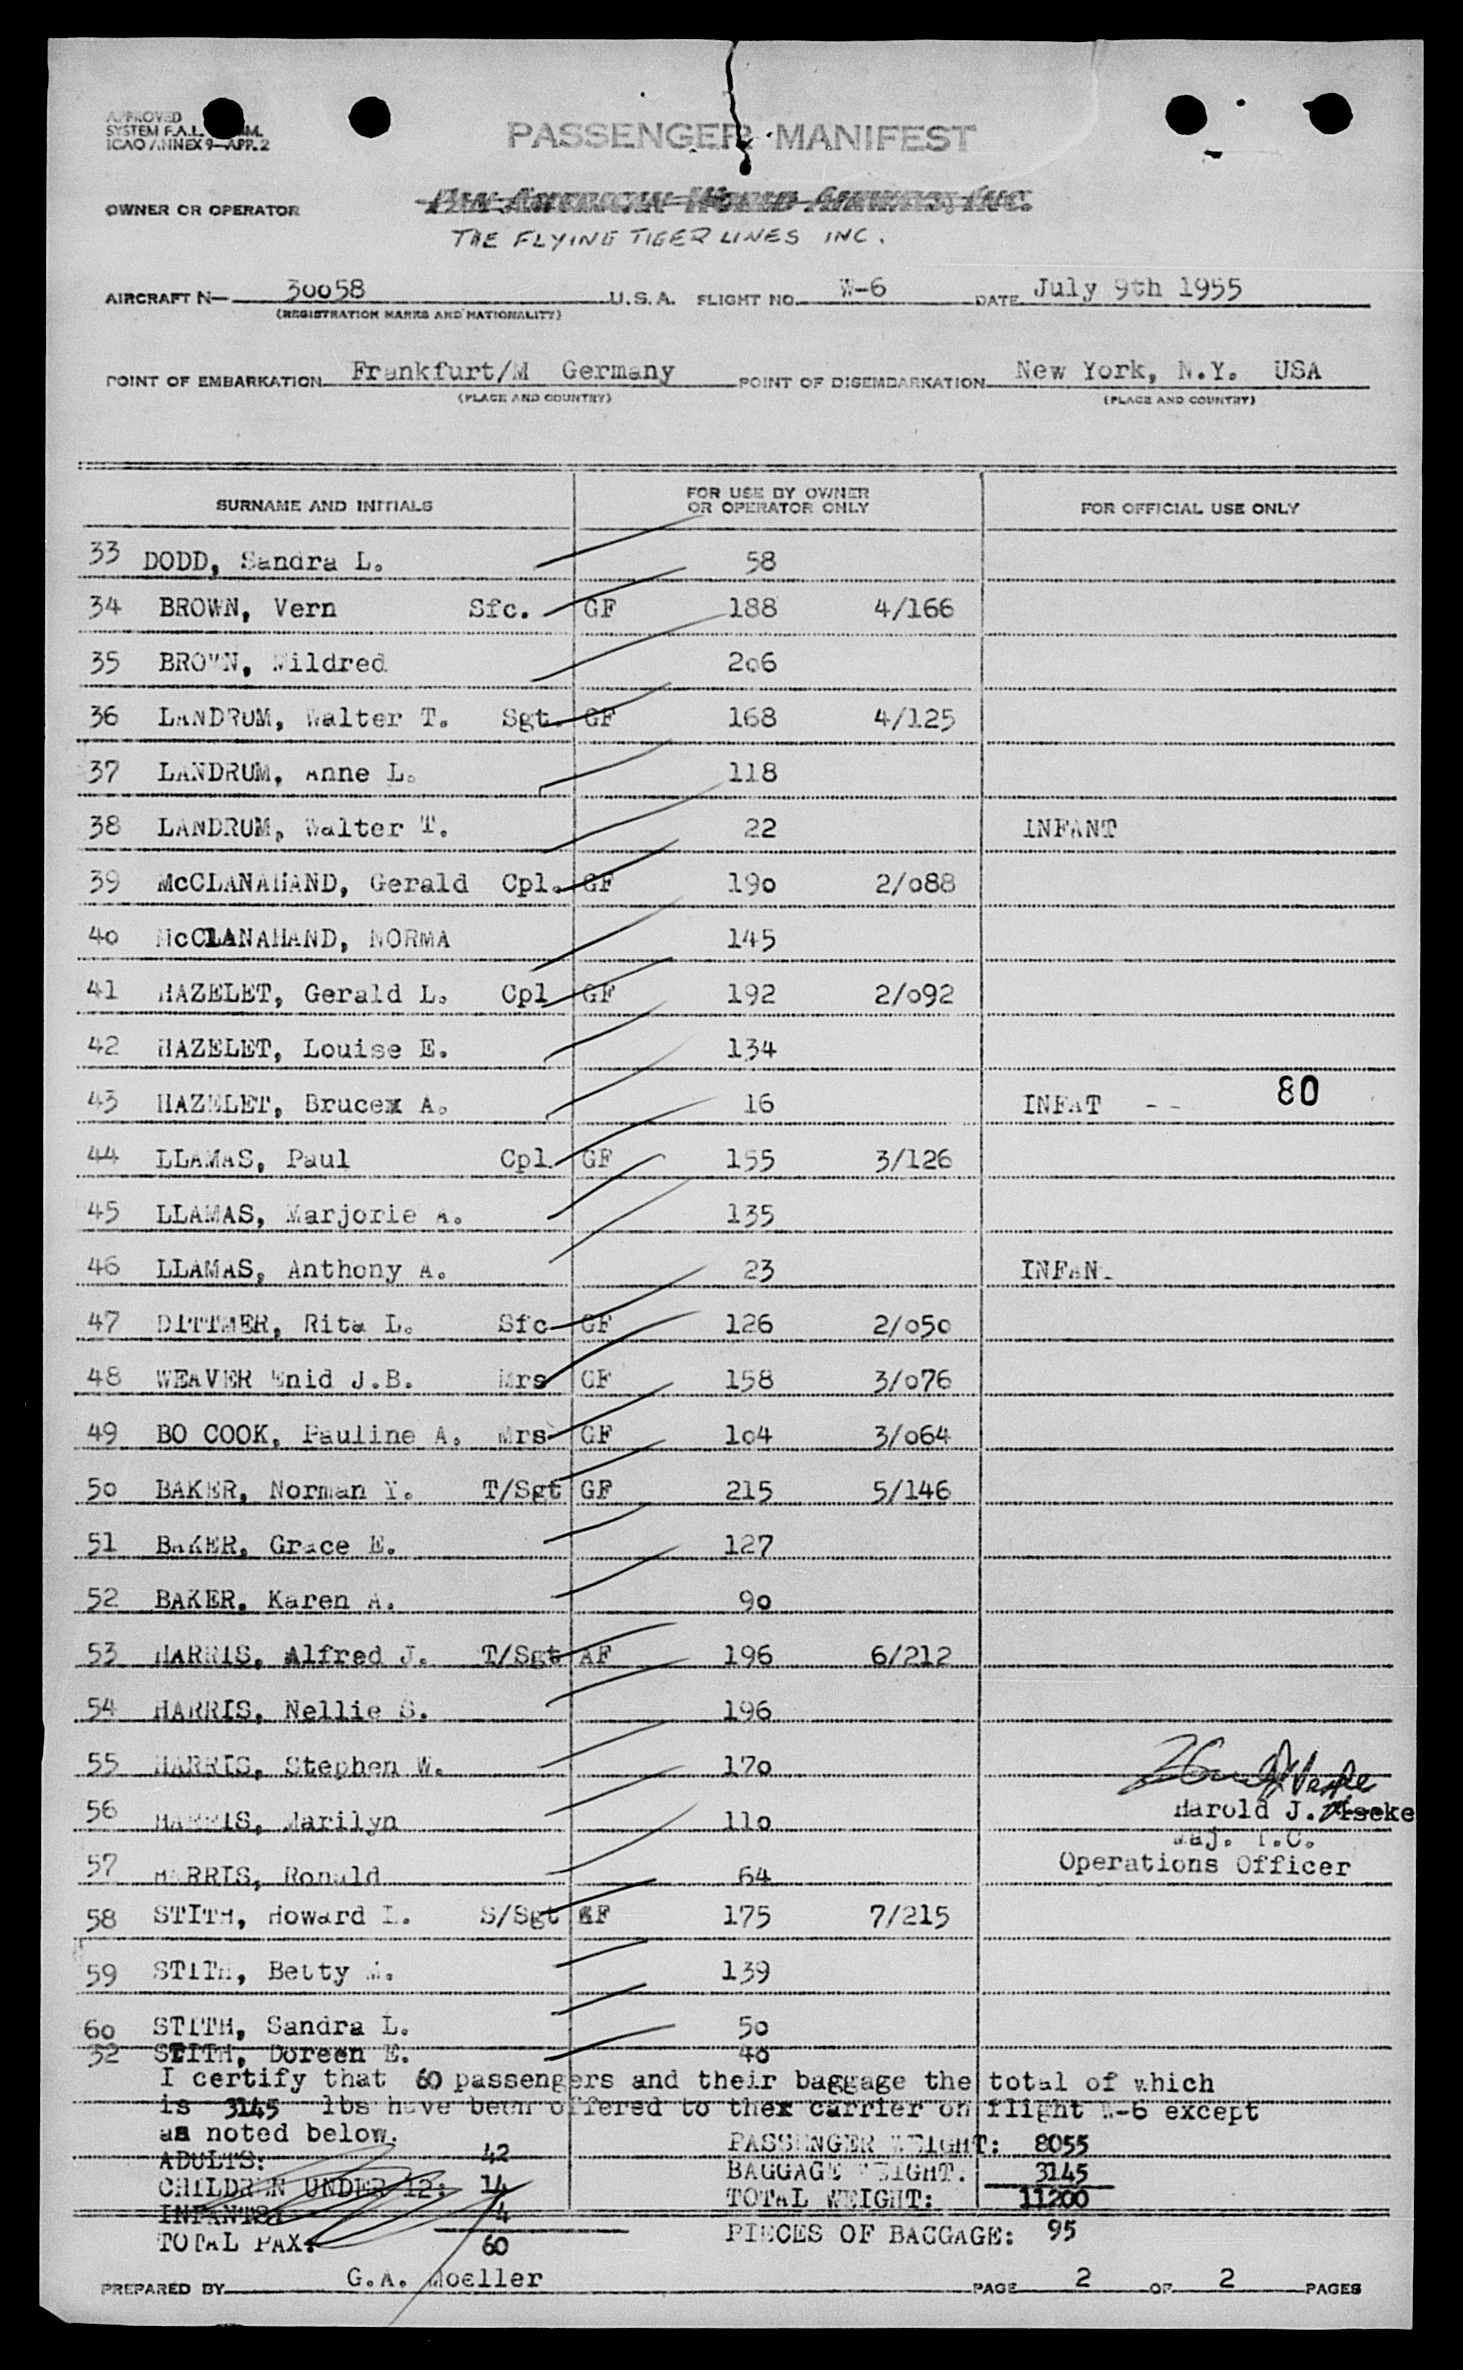 APPROVED
SYSTEM F.A.L.
ICAO ANNEX 9—APP. 2
PASSENGER MANIFEST
OWNER OR OPERATOR PAN AMERICAN WORLD AIRWAYS, INC.
THE FLYING TIGER LINES INC.
AIRCRAFT N— 30058 U.S.A. FLIGHT NO. W-6 DATE July 9th 1955
(REGISTRATION MARKS AND NATIONALITY)
POINT OF EMBARKATION Frankfurt/M Germany POINT OF DISEMBARKATION New York, N.Y. USA
(PLACE AND COUNTRY) (PLACE AND COUNTRY)
SURNAME AND INITIALS FOR USE BY OWNER OR OPERATOR ONLY FOR OFFICIAL USE ONLY
33 DODD, Sandra L. 58
34 BROWN, Vern Sfc. GF 188 4/166
35 BROWN, Mildred 206
36 LANDRUM, Walter T. Sgt. GF 168 4/125
37 LANDRUM, Anne L. 118
38 LANDRUM, Walter T. 22 INFANT
39 McCLANAHAND, Gerald Cpl. GF 190 2/088
40 McCLANAHAND, NORMA 145
41 HAZELET, Gerald L. Cpl GF 192 2/092
42 HAZELET, Louise E. 134
43 HAZELET, Brucex A. 16 INFAT -- 80
44 LLAMAS, Paul Cpl GF 155 3/126
45 LLAMAS, Marjorie A. 135
46 LLAMAS, Anthony A. 23 INFAN.
47 DITTMER, Rita L. Sfc GF 126 2/050
48 WEAVER Enid J.B. Mrs GF 158 3/076
49 BO COOK, Pauline A. Mrs GF 104 3/064
50 BAKER, Norman Y. T/Sgt GF 215 5/146
51 BAKER, Grace E. 127
52 BAKER, Karen A. 90
53 HARRIS, Alfred J. T/Sgt AF 196 6/212
54 HARRIS, Nellie S. 196
55 HARRIS, Stephen W. 170
56 HARRIS, Marilyn 110
Harold J.
Maj. T.C.
57 HARRIS, Ronald 64 Operations Officer
58 STITH, Howard L. S/Sgt AF 175 7/215
59 STITH, Betty M. 139
60 STITH, Sandra L. 50
32 STITH, Doreen E. 40
I certify that 60 passengers and their baggage the total of which
is 3145 lbs have been offered to thex carrier on flight W-6 except
as noted below.
ADULTS: 42 PASSENGER WEIGHT: 8055
CHILDREN UNDER 12: 14 BAGGAGE WEIGHT. 3145
INFANTS: 4 TOTAL WEIGHT: 11200
TOTAL PAX: 60 PIECES OF BAGGAGE: 95
PREPARED BY G.A. Moeller PAGE 2 OF 2 PAGES